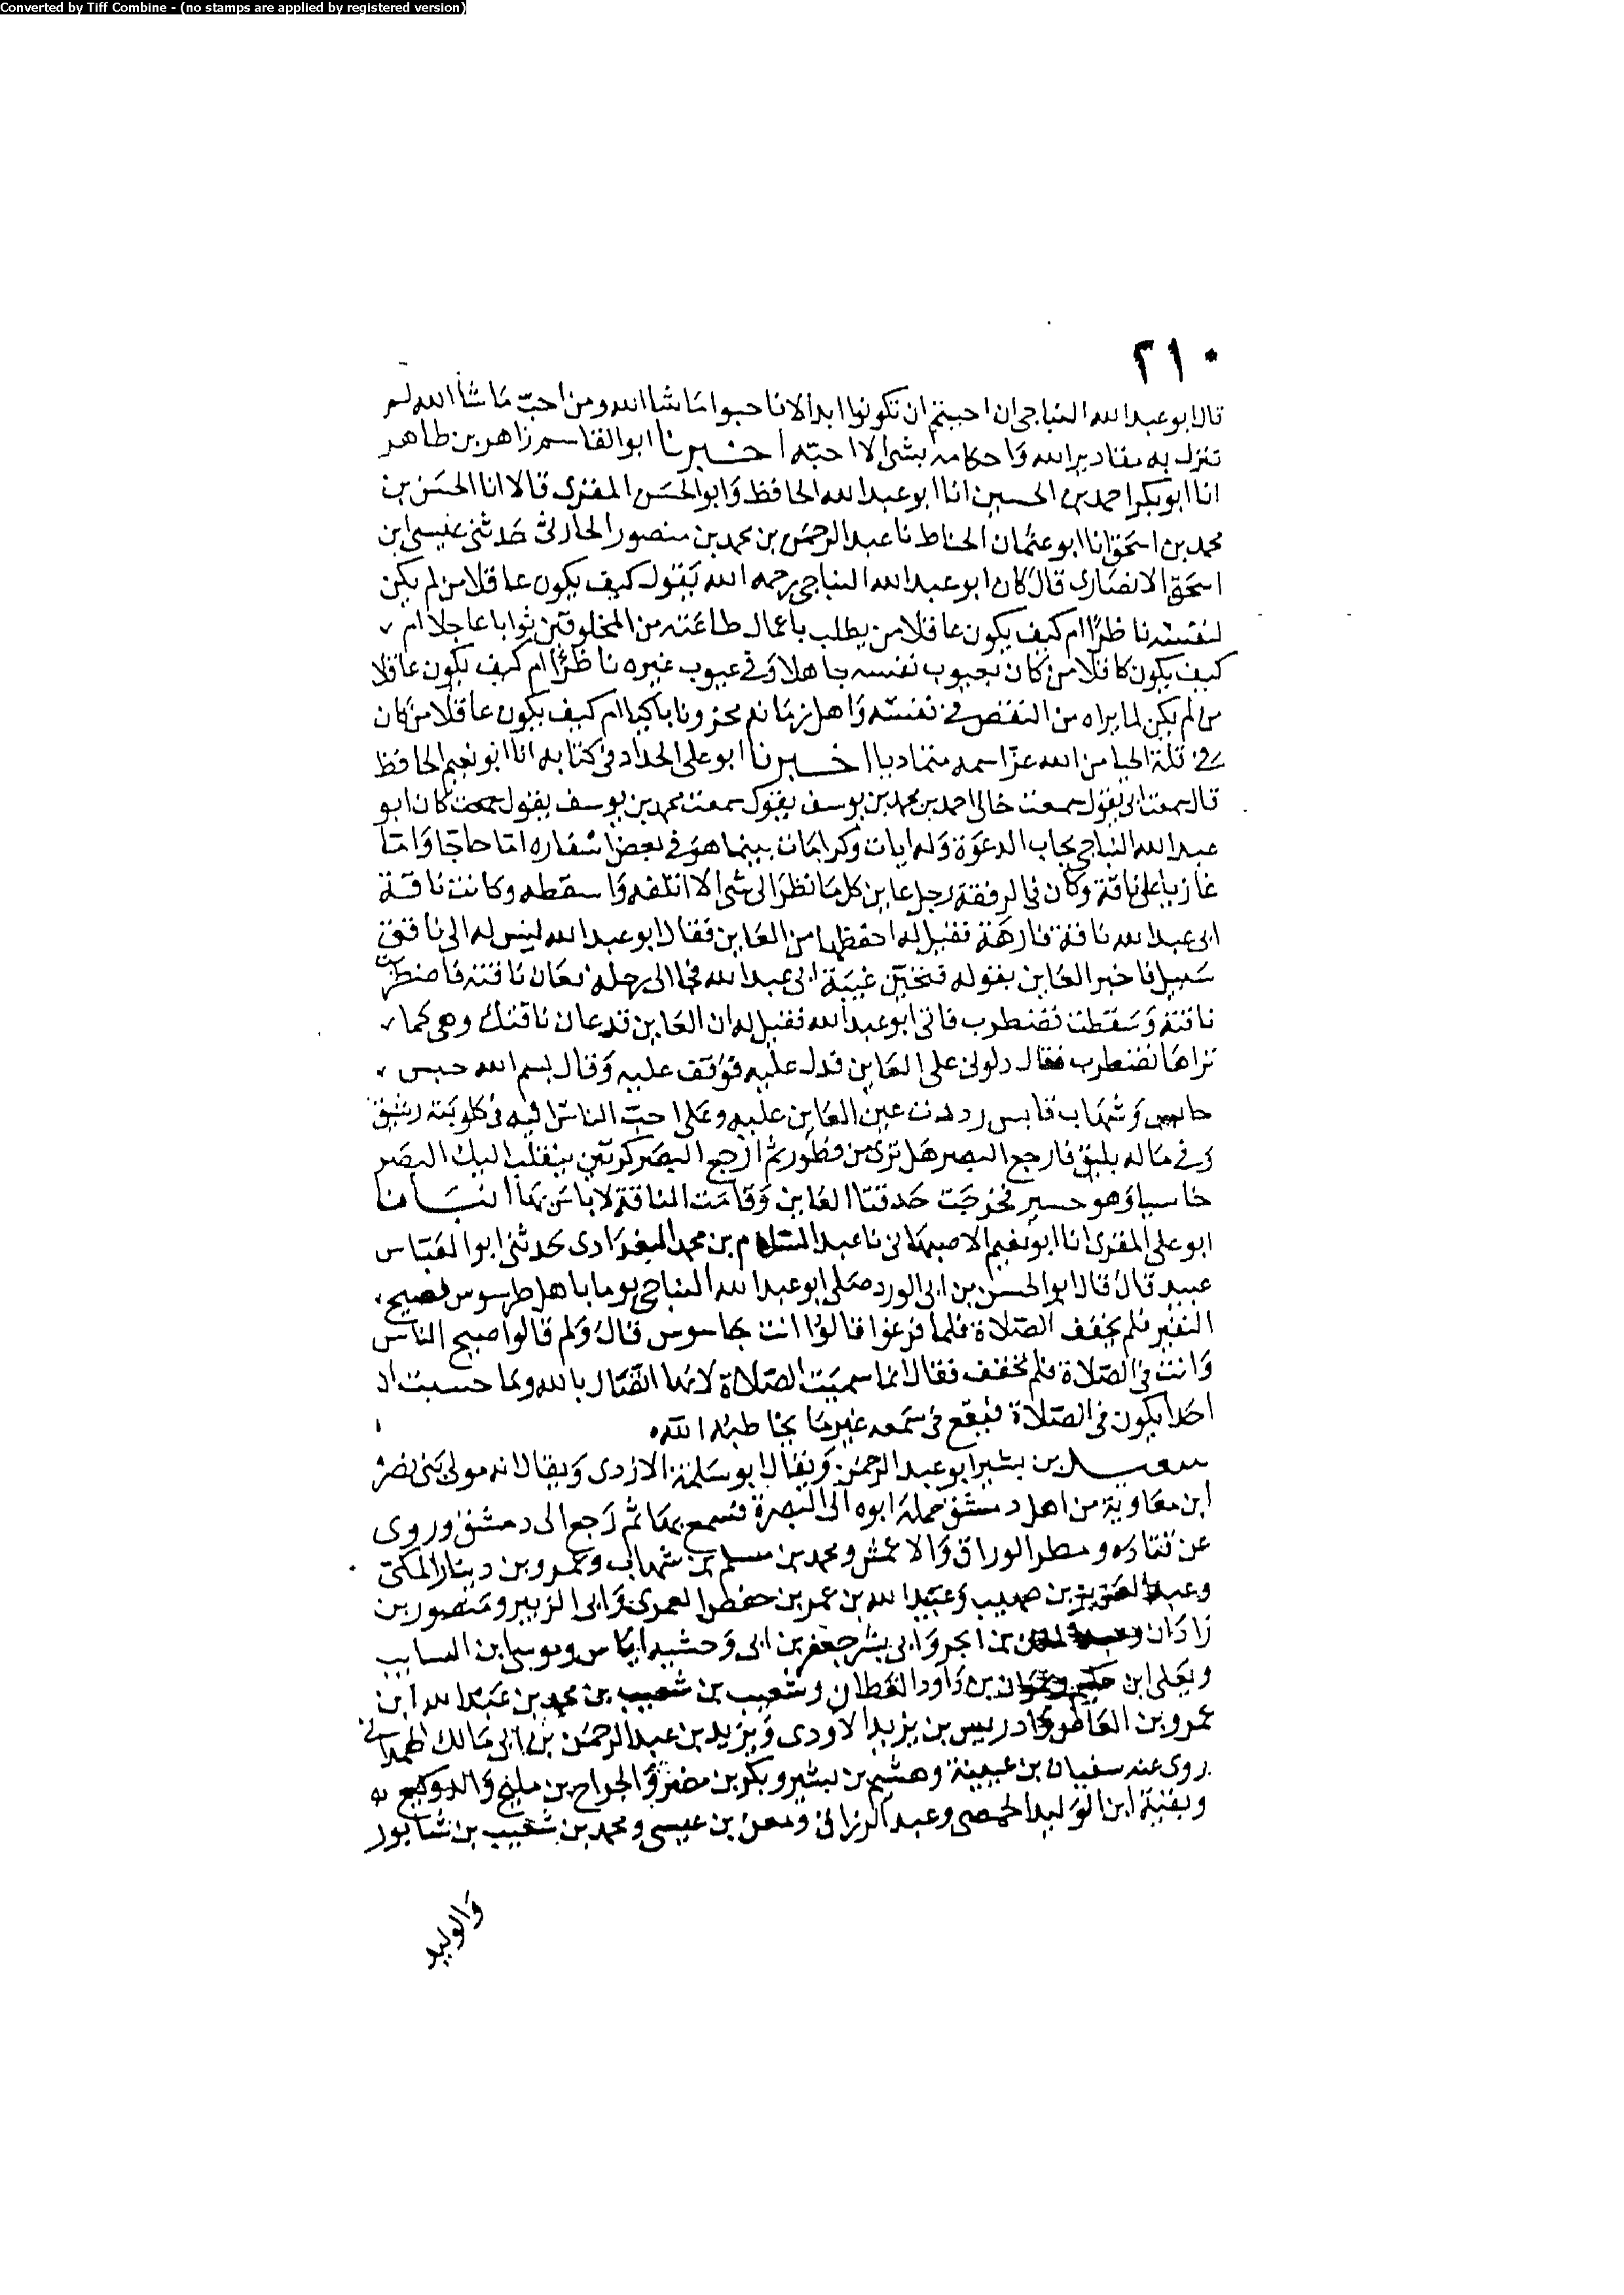 Converted by Tiff Combine - (no stamps are applied by registered version)
٢١٠
قال ابو عبد الله النباجي ان احببتم ان تكونوا ابدالا فاحبوا ما شا الله ومن احب ما شا الله لم
تنزل به مقادير الله واحكامه بشى الا احبه اخبرنا ابو القاسم زاهر بن طاهر
انا ابو بكر احمد بن الحسين انا ابو عبد الله الحافظ وابو الحسن المقرى قالا انا الحسن بن
محمد بن اسحق انا ابو عثمان الحناط نا عبد الرحمن بن محمد بن منصور الحارثى حدثنى عيسى ابن
اسحق الانصارى قال كان ابو عبد الله النباجي رحمه الله يقول كيف يكون عاقلا من لم يكن
لنفسه ناظرا ام كيف يكون عاقلا من يطلب باعمال طاعته من المخلوقين ثوابا عاجلا ام
كيف يكون عاقلا من كان بعيوب نفسه جاهلا وفى عيوب غيره ناظرا ام كيف يكون عاقلا
من لم يكن لما يراه من النقص فى نفسه واهل زمانه محزونا باكيا ام كيف يكون عاقلا من كان
فى قلة الحيا من الله عز اسمه متماديا اخبرنا ابو على الحداد فى كتابه انا ابو نعيم الحافظ
قال سمعت ابى يقول سمعت خالى احمد بن محمد بن يوسف يقول سمعت محمد بن يوسف يقول كان ابو
عبد الله النباجي مجاب الدعوة وله ايات وكرامات بينما هو فى بعض اسفاره اما حاجا واما
غازيا على ناقة وكان فى الرفقة رجل عاين كل ما نظر الى شى الا اتلفه واسقطه وكانت ناقة
ابى عبد الله ناقة فارهة فقيل له احفظها من العاين فقال ابو عبد الله ليس له الى ناقتى
سبيل فاخبر العاين بقوله فتحين غيبة ابى عبد الله فجا الى رحله فعان ناقته فاضطربت
ناقته وسقطت تضطرب فاتى ابو عبد الله فقيل له ان العاين قد عان ناقتك وهى كما
تراها تضطرب فقال دلونى على العاين فدل عليه فوقف عليه وقال بسم الله حبس
حابس وشهاب قابس رددت عين العاين عليه وعلى احب الناس اليه فى كلوبته رشيق
وفى ماله يليق فارجع البصر هل ترى من فطور ثم ارجع البصر كرتين ينقلب اليك البصر
خاسيا وهو حسير فخرجت حدقتا العاين وقامت الناقة لا باس بها انبانا
ابو على المقرى انا ابو نعيم الاصبهانى نا عبد السلام بن محمد البغدادى حدثنى ابو العباس
عبيد قال قال ابو الحسن بن ابى الورد صلى ابو عبد الله النباجي يوما باهل طرسوس فصيح
النفير فلم يخفف الصلاة فلما فرغوا قالوا انت جاسوس قال ولم قالوا صيح الناس
وانت فى الصلاة فلم تخفف فقال انما سميت الصلاة لانها اتصال بالله وما حسبت ان
احدا يكون فى الصلاة فيقع فى سمعه غير ما يخاطبه الله
سعيد بن بشير ابو عبد الرحمن ويقال ابو سلمة الازدى ويقال انه مولى بنى نصر
ابن معاوية من اهل دمشق حمله ابوه الى البصرة فسمع بها ثم رجع الى دمشق وروى
عن قتاده ومطر الوراق والاعمش ومحمد بن مسلم بن شهاب وعمرو بن دينار المكى
وعبد العزيز بن صهيب وعبيد الله بن عمر بن حفص العمرى وابى الزبير ومنصور بن
زاذان وعبد الملك بن ابجر وابى بشر جعفر بن ابى وحشيه اياس وموسى ابن السايب
ويعلى ابن حكيم وعمران بن داود القطان وشعيب بن شعيب بن محمد بن عبد الله ابن
عمرو بن العاص وادريس بن يزيد الاودى ويزيد بن عبد الرحمن بن ابى مالك الهمدانى
روى عنه سفيان بن عيينة وهشيم بن بشير وبكر بن مضر والجراح بن مليح والد وكيع
وبقية ابن الوليد الحمصى وعبد الرزاق ومعن بن عيسى ومحمد بن شعيب بن شابور
والوليد